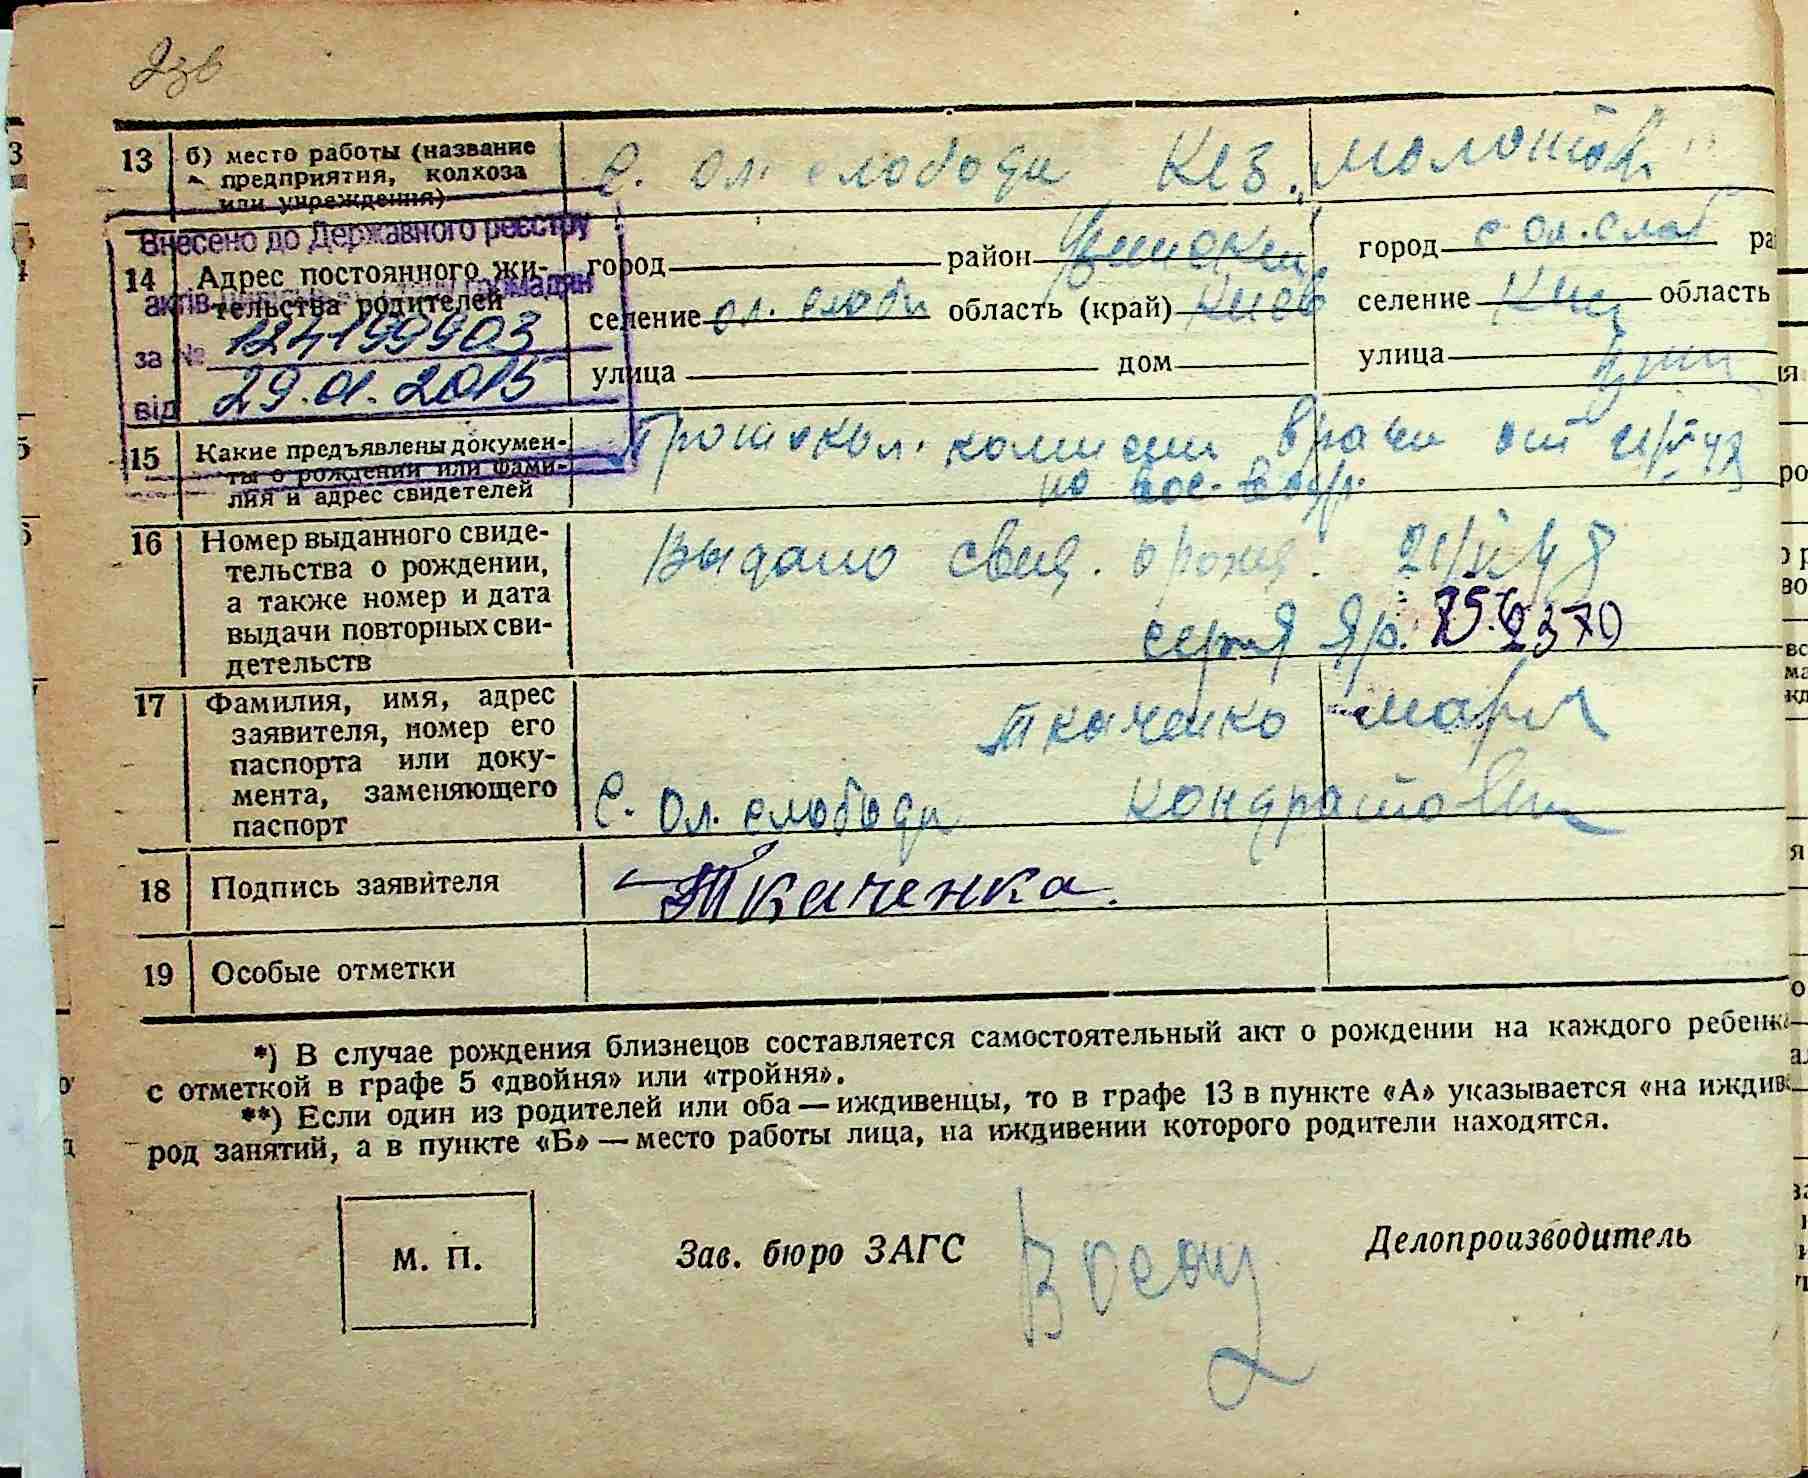 13 б) место работы (название предприятия, колхоза или учреждения)
с. Ол. слободи Кгз. „Молотов"
Внесено до Державного реєстру
актів цивільного стану громадян
за № 124199903
від 29.01.2015
14 Адрес постоянного жительства родителей
город район город с. Ол. слоб
селение Ол. слоби область (край) Киев селение область
улица дом улица
15 Какие предъявлены документы о рождении или фамилия и адрес свидетелей
Протокол. комисии врачи от
по вос-
16 Номер выданного свидетельства о рождении, а также номер и дата выдачи повторных свидетельств
Выдано свид. о рожд. 21/II 48
серія Яр.
17 Фамилия, имя, адрес заявителя, номер его паспорта или документа, заменяющего паспорт
Ткаченко Мария
с. Ол. слободи Кондратовн
18 Подпись заявителя
Ткаченка.
19 Особые отметки
*) В случае рождения близнецов составляется самостоятельный акт о рождении на каждого ребенка
с отметкой в графе 5 «двойня» или «тройня».
**) Если один из родителей или оба — иждивенцы, то в графе 13 в пункте «А» указывается «на иждив
род занятий, а в пункте «Б» — место работы лица, на иждивении которого родители находятся.
М. П.
Зав. бюро ЗАГС
Делопроизводитель